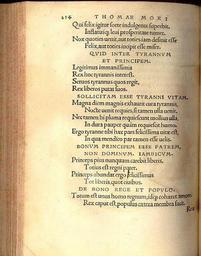 216 THOMAE MORI
Qui felix igitur sorte indulgente superbit,
Instaurat leui prosperitate tumet.
Nox quoties uenit, aut toties iam desinit esse
Felix, aut toties incipit esse miser.
QVID INTER TYRANNVM
ET PRINCIPEM.
Legitimus immanissimis
Rex hoc tyrannis interest.
Seruos tyrannus quos regit,
Rex liberos putat suos.
SOLLICITAM ESSE TYRANNI VITAM.
Magna diem magnis exhaurit cura tyrannum,
Nocte uenit requies, si tamen ulla uenit.
Nec tamen hi pluma requiescunt mollius ulla,
In dura pauper quam requiescit humo.
Ergo tyranne tibi haec pars felicissima uitae est,
In qua mendico par tamen esse uelis.
BONVM PRINCIPEM ESSE PATREM,
NON DOMINVM. IAMBICVM.
Princeps pius nunquam carebit liberis,
Totius est regni pater.
Princeps abundat ergo felicissimus
Tot liberis, quot ciuibus.
DE BONO REGE ET POPVLO.
Totum est unus homo regnum, idque cohaeret amore.
Rex caput est, populus caetera membra facit.
Rex